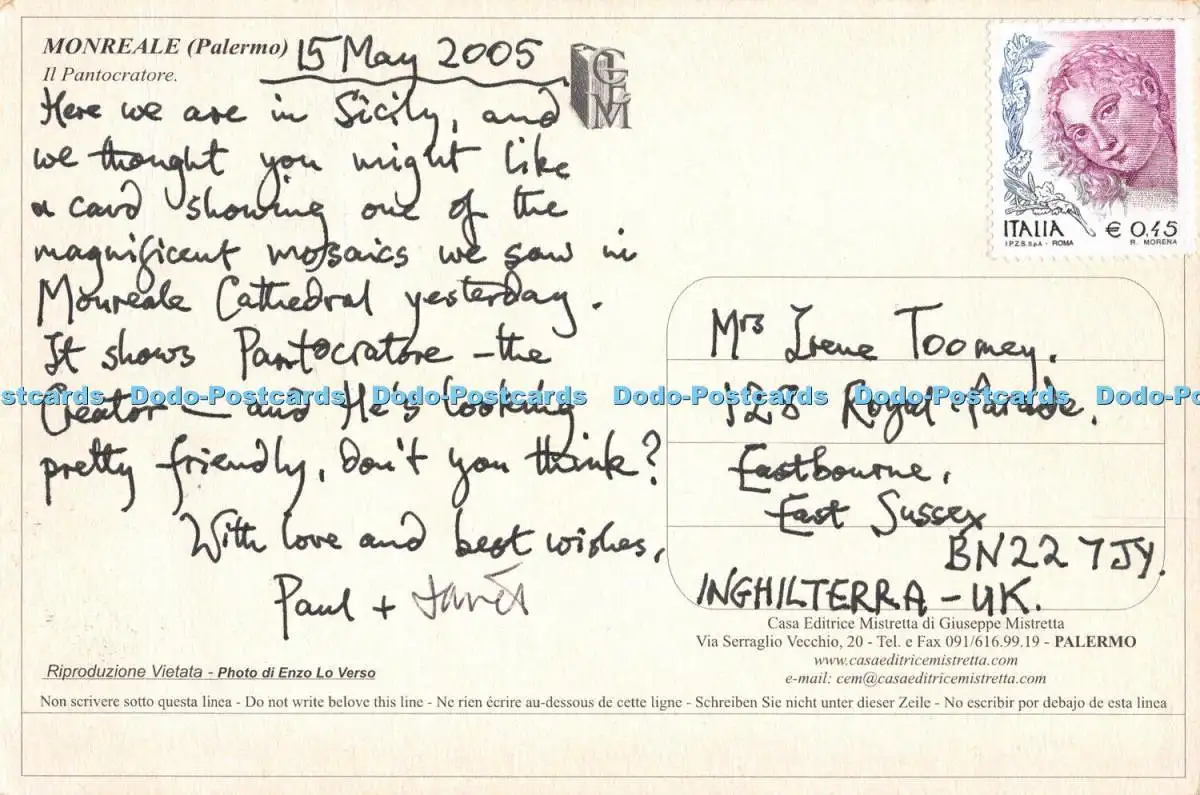 MONREALE (Palermo)
Il Pantocratore.
15 May 2005
CEM
Here we are in Sicily, and
we thought you might like
a card showing one of the
magnificent mosaics we saw in
Monreale Cathedral yesterday.
It shows Pantocratore – the
Creator – and He's looking
pretty friendly, don't you think?
With love and best wishes,
Paul + Janet
ITALIA € 0,45
I.P.Z.S. S.p.A. - ROMA R. MORENA
Mrs Irene Toomey.
128 Royal Parade.
Eastbourne,
East Sussex
BN22 7JY.
INGHILTERRA – UK.
Dodo-Postcards Dodo-Postcards Dodo-Postcards Dodo-Postcards
Casa Editrice Mistretta di Giuseppe Mistretta
Via Serraglio Vecchio, 20 - Tel. e Fax 091/616.99.19 - PALERMO
www.casaeditricemistretta.com
e-mail: cem@casaeditricemistretta.com
Riproduzione Vietata - Photo di Enzo Lo Verso
Non scrivere sotto questa linea - Do not write belove this line - Ne rien écrire au-dessous de cette ligne - Schreiben Sie nicht unter dieser Zeile - No escribir por debajo de esta linea